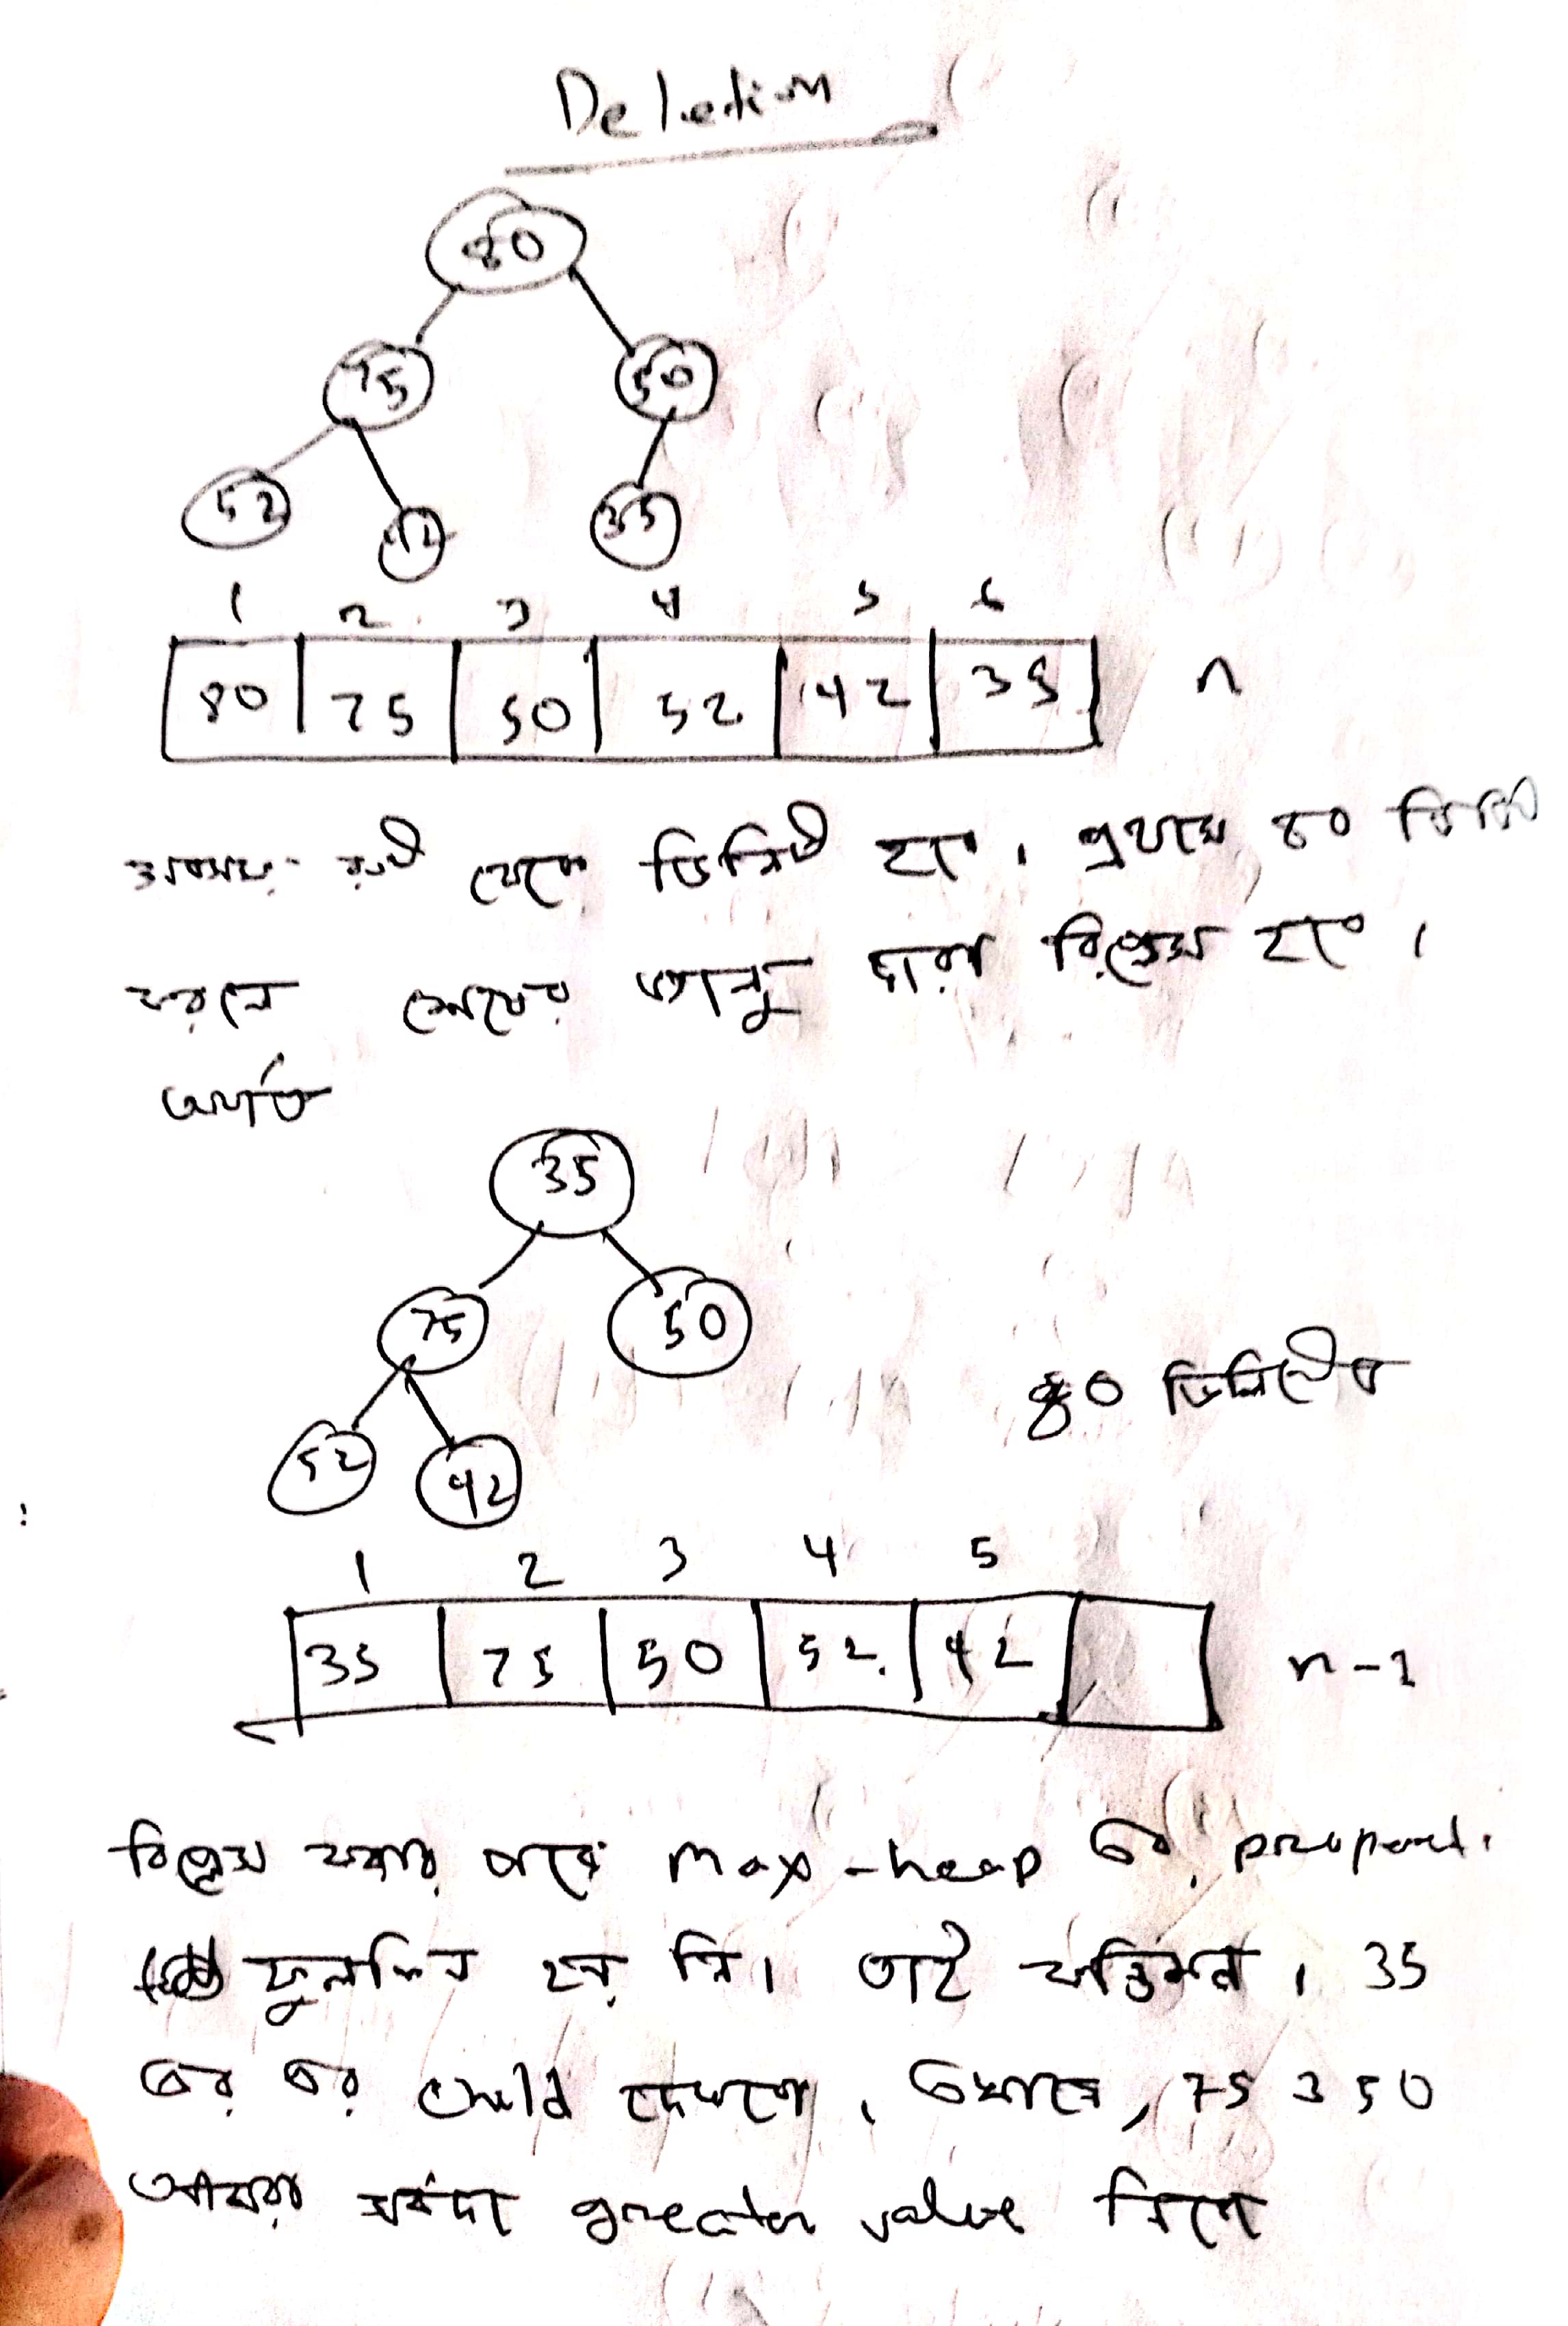 Deletion
80
75 50
52 42 35
1 2 3 4 5 6
80 75 50 52 42 35 n
থেকে ডিলিট হবে। প্রথমে ৪০ ডিলি
করলে শেষের ভ্যালু দ্বারা রিপ্লেস হবে।
অর্থাৎ
35
75 50
52 42
80 ডিলিটের
1 2 3 4 5
35 75 50 52 42 n-1
রিপ্লেস করার পরে max-heap এর propert
ফুলফিল হয় নি। তাই 35
এর এর child দেখবো। এখানে, 75 ও 50
আমরা সর্বদা greater value নিবো